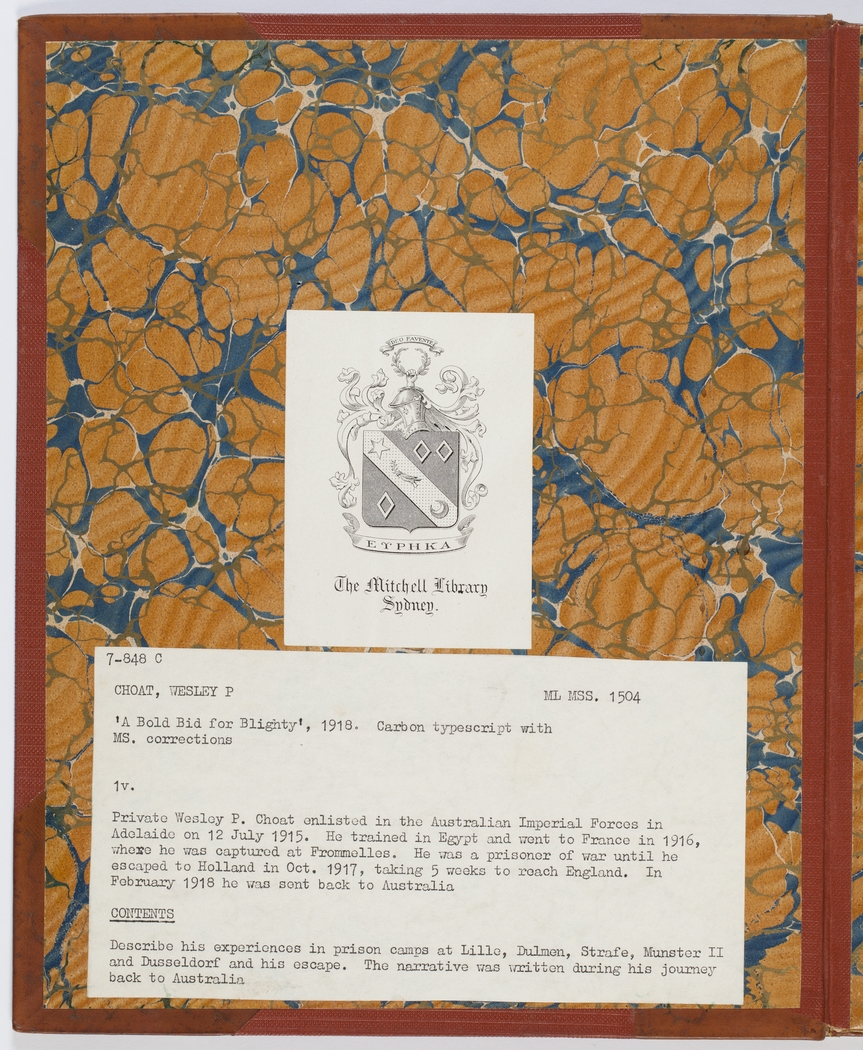 DEO FAVENTE
ΕΥΡΗΚΑ
The Mitchell Library
Sydney.
7-848 C
CHOAT, WESLEY P ML MSS. 1504
'A Bold Bid for Blighty', 1918. Carbon typescript with
MS. corrections
1v.
Private Wesley P. Choat enlisted in the Australian Imperial Forces in
Adelaide on 12 July 1915. He trained in Egypt and went to France in 1916,
where he was captured at Frommelles. He was a prisoner of war until he
escaped to Holland in Oct. 1917, taking 5 weeks to reach England. In
February 1918 he was sent back to Australia
CONTENTS
Describe his experiences in prison camps at Lille, Dulmen, Strafe, Munster II
and Dusseldorf and his escape. The narrative was written during his journey
back to Australia